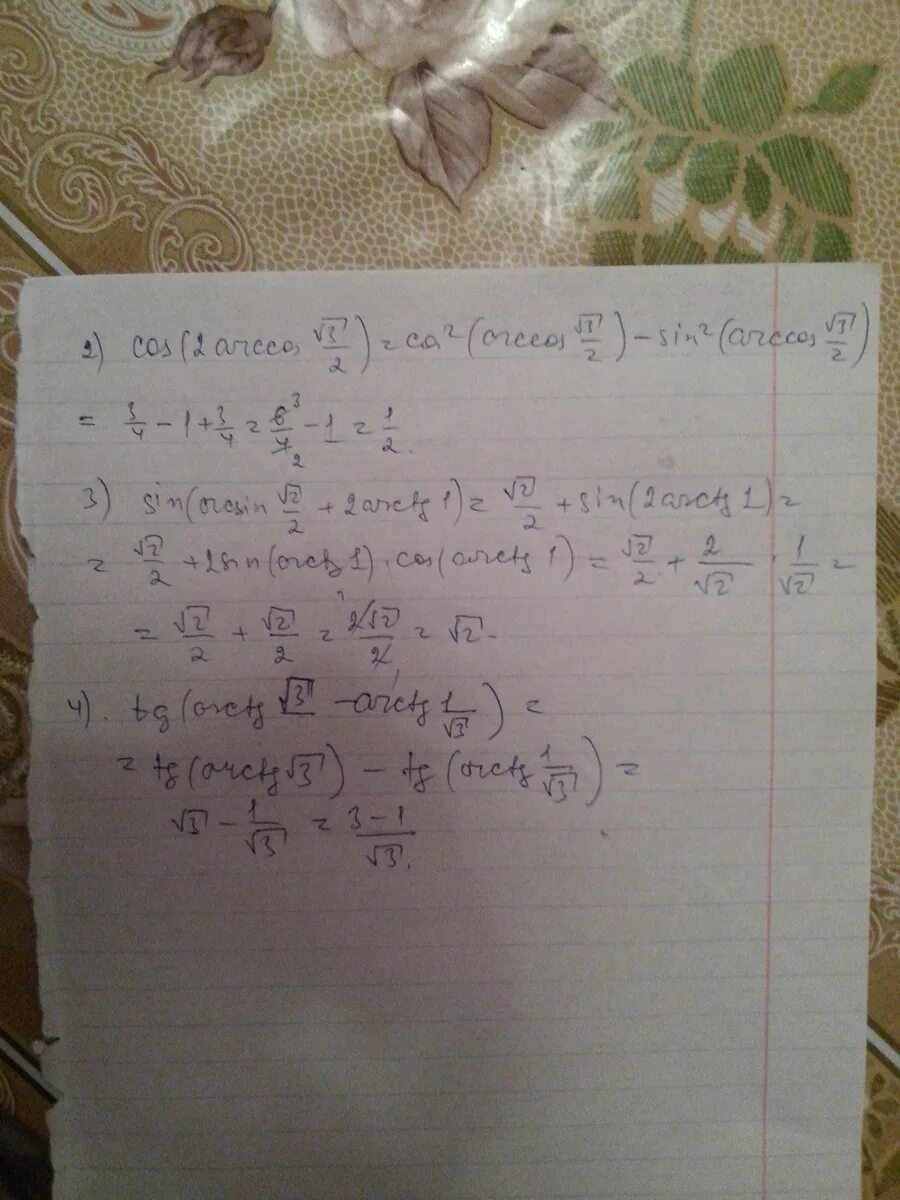 2) cos(2 arccos √3/2) = cos²(arccos √3/2) - sin²(arccos √3/2)
= 3/4 - 1 + 3/4 = 6³/4₂ - 1 = 1/2.
3) sin(arcsin √2/2 + 2arctg 1) = √2/2 + sin(2arctg 1) =
= √2/2 + 2sin(arctg 1) · cos(arctg 1) = √2/2 + 2/√2 · 1/√2 =
= √2/2 + √2/2 = 2√2/2 = √2.
4). tg(arctg √3 - arctg 1/√3) =
= tg(arctg √3) - tg(arctg 1/√3) =
√3 - 1/√3 = 3-1/√3.